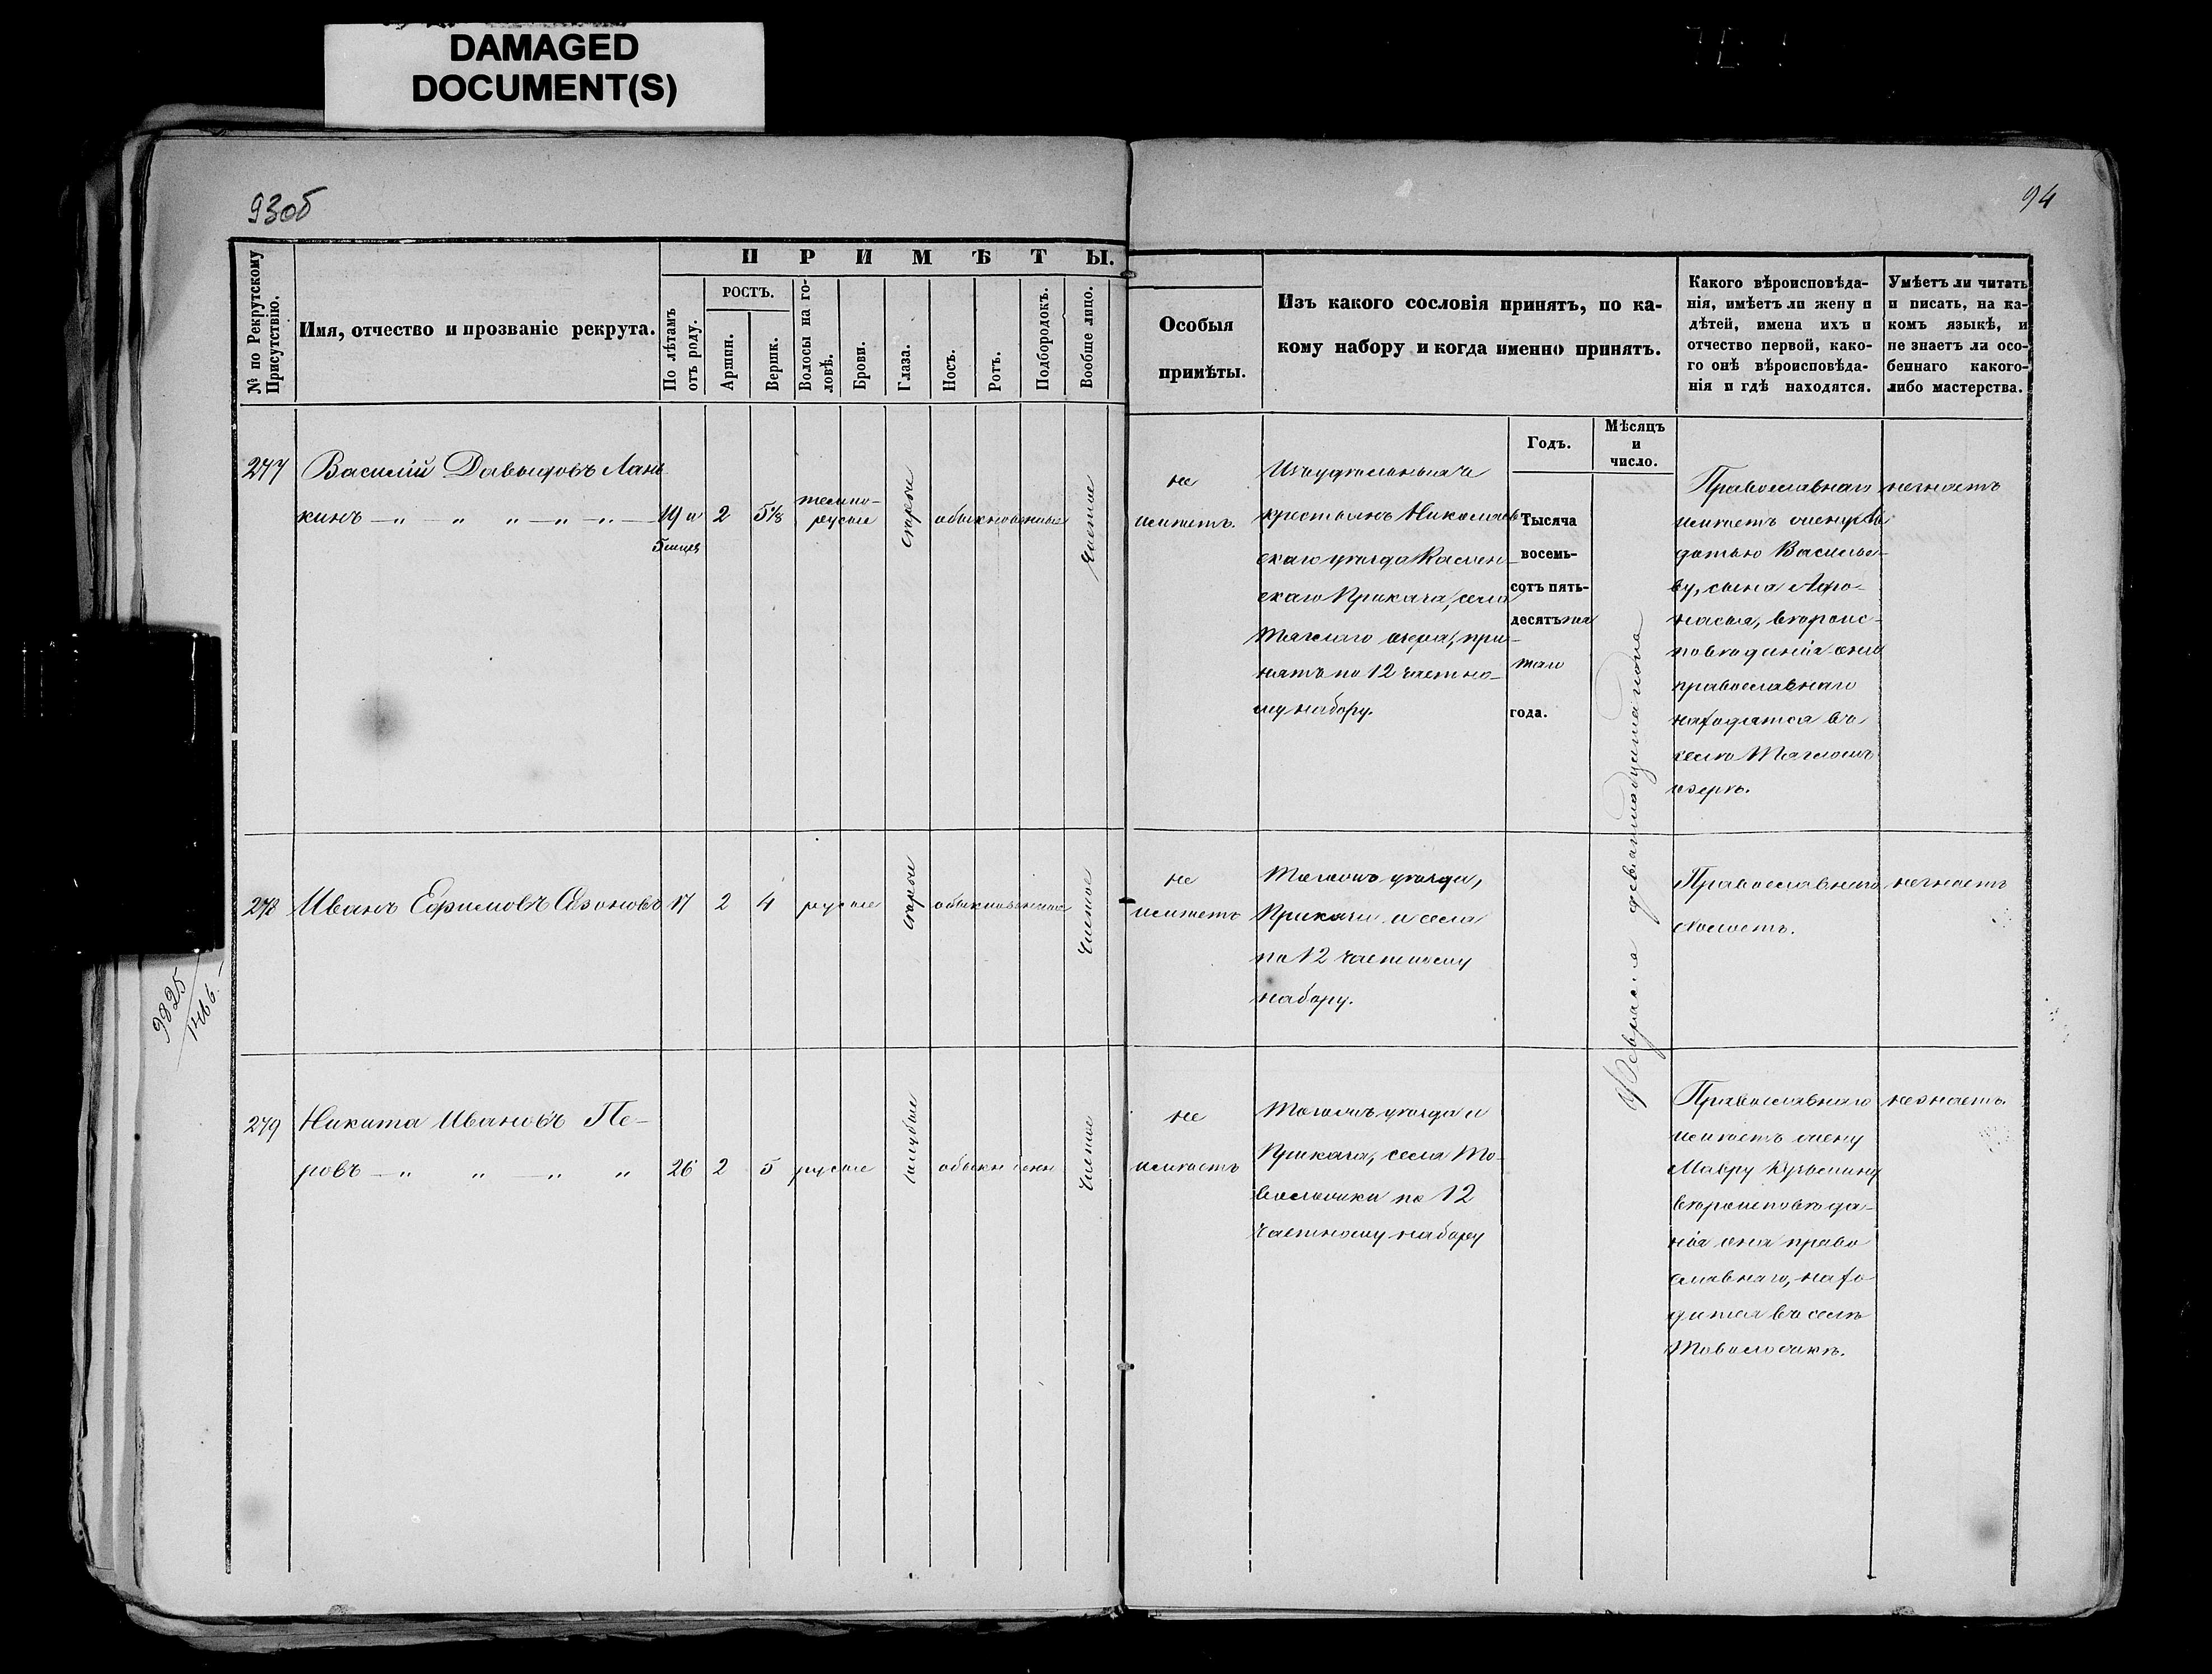 DAMAGED
DOCUMENT(S)
93об
94
ПРИМѢТЫ.
№ по Рекрутскому
Присутствію.
Имя, отчество и прозваніе рекрута.
По лѣтамъ
отъ роду.
РОСТЪ.
Аршин.
Вершк.
Волосы на го-
ловѣ.
Брови.
Глаза.
Носъ.
Ротъ.
Подбородокъ.
Вообще лицо.
Особыя
примѣты.
Изъ какого сословія принятъ, по ка-
кому набору и когда именно принятъ.
Годъ.
Мѣсяцъ
и
число.
Какого вѣроисповѣда-
нія, имѣетъ ли жену и
дѣтей, имена ихъ и
отчество первой, како-
го онѣ вѣроисповѣда-
нія и гдѣ находятся.
Умѣетъ ли читать
и писать, на ка-
комъ языкѣ, и
не знаетъ ли осо-
беннаго какого-
либо мастерства.
277
Василій Давыдовъ Лань
кинъ — „ — „ „ — „ — „ —
19 и
5 месец
2
5 1/8
темно-
русые
серые
обыкновенные
чистое
не
имеетъ.
Изъ удельныхъ
крестьянъ Николаев
скаго уезда Камен-
скаго Приказа, села
Тяглаго озера, при-
нятъ по 12 частно-
му набору.
Тысяча
восемь-
сотъ пять-
десятъ пя
таго
года.
Февраля девятнадцатаго дня
Православнаго
имеетъ жену Ав
дотью Василье-
ву, сына Афо-
насья, вероис-
поведанія они
православнаго
находятся въ
селе Тягломъ
озере.
незнаетъ
278
Иванъ Ефимовъ Сазоновъ
17
2
4
русые
серые
обыкновенные
чистое
не
имеетъ
Тогожъ уезда,
Приказа и села
по 12 частному
набору.
Православнаго
холостъ.
незнаетъ
9825
1466.
279
Никита Ивановъ Пе-
ровъ — „ „ — „ „
26
2
5
русые
голубые
обыкновенн
чистое
не
имеетъ
Тогожъ уезда и
Приказа, села То-
воложки по 12
частному набору
Православнаго
имеетъ жену
Мавру Кузьмину
вероисповеда-
нія она право
славнаго, нахо
дится въ селе
Товоложке.
незнаетъ.